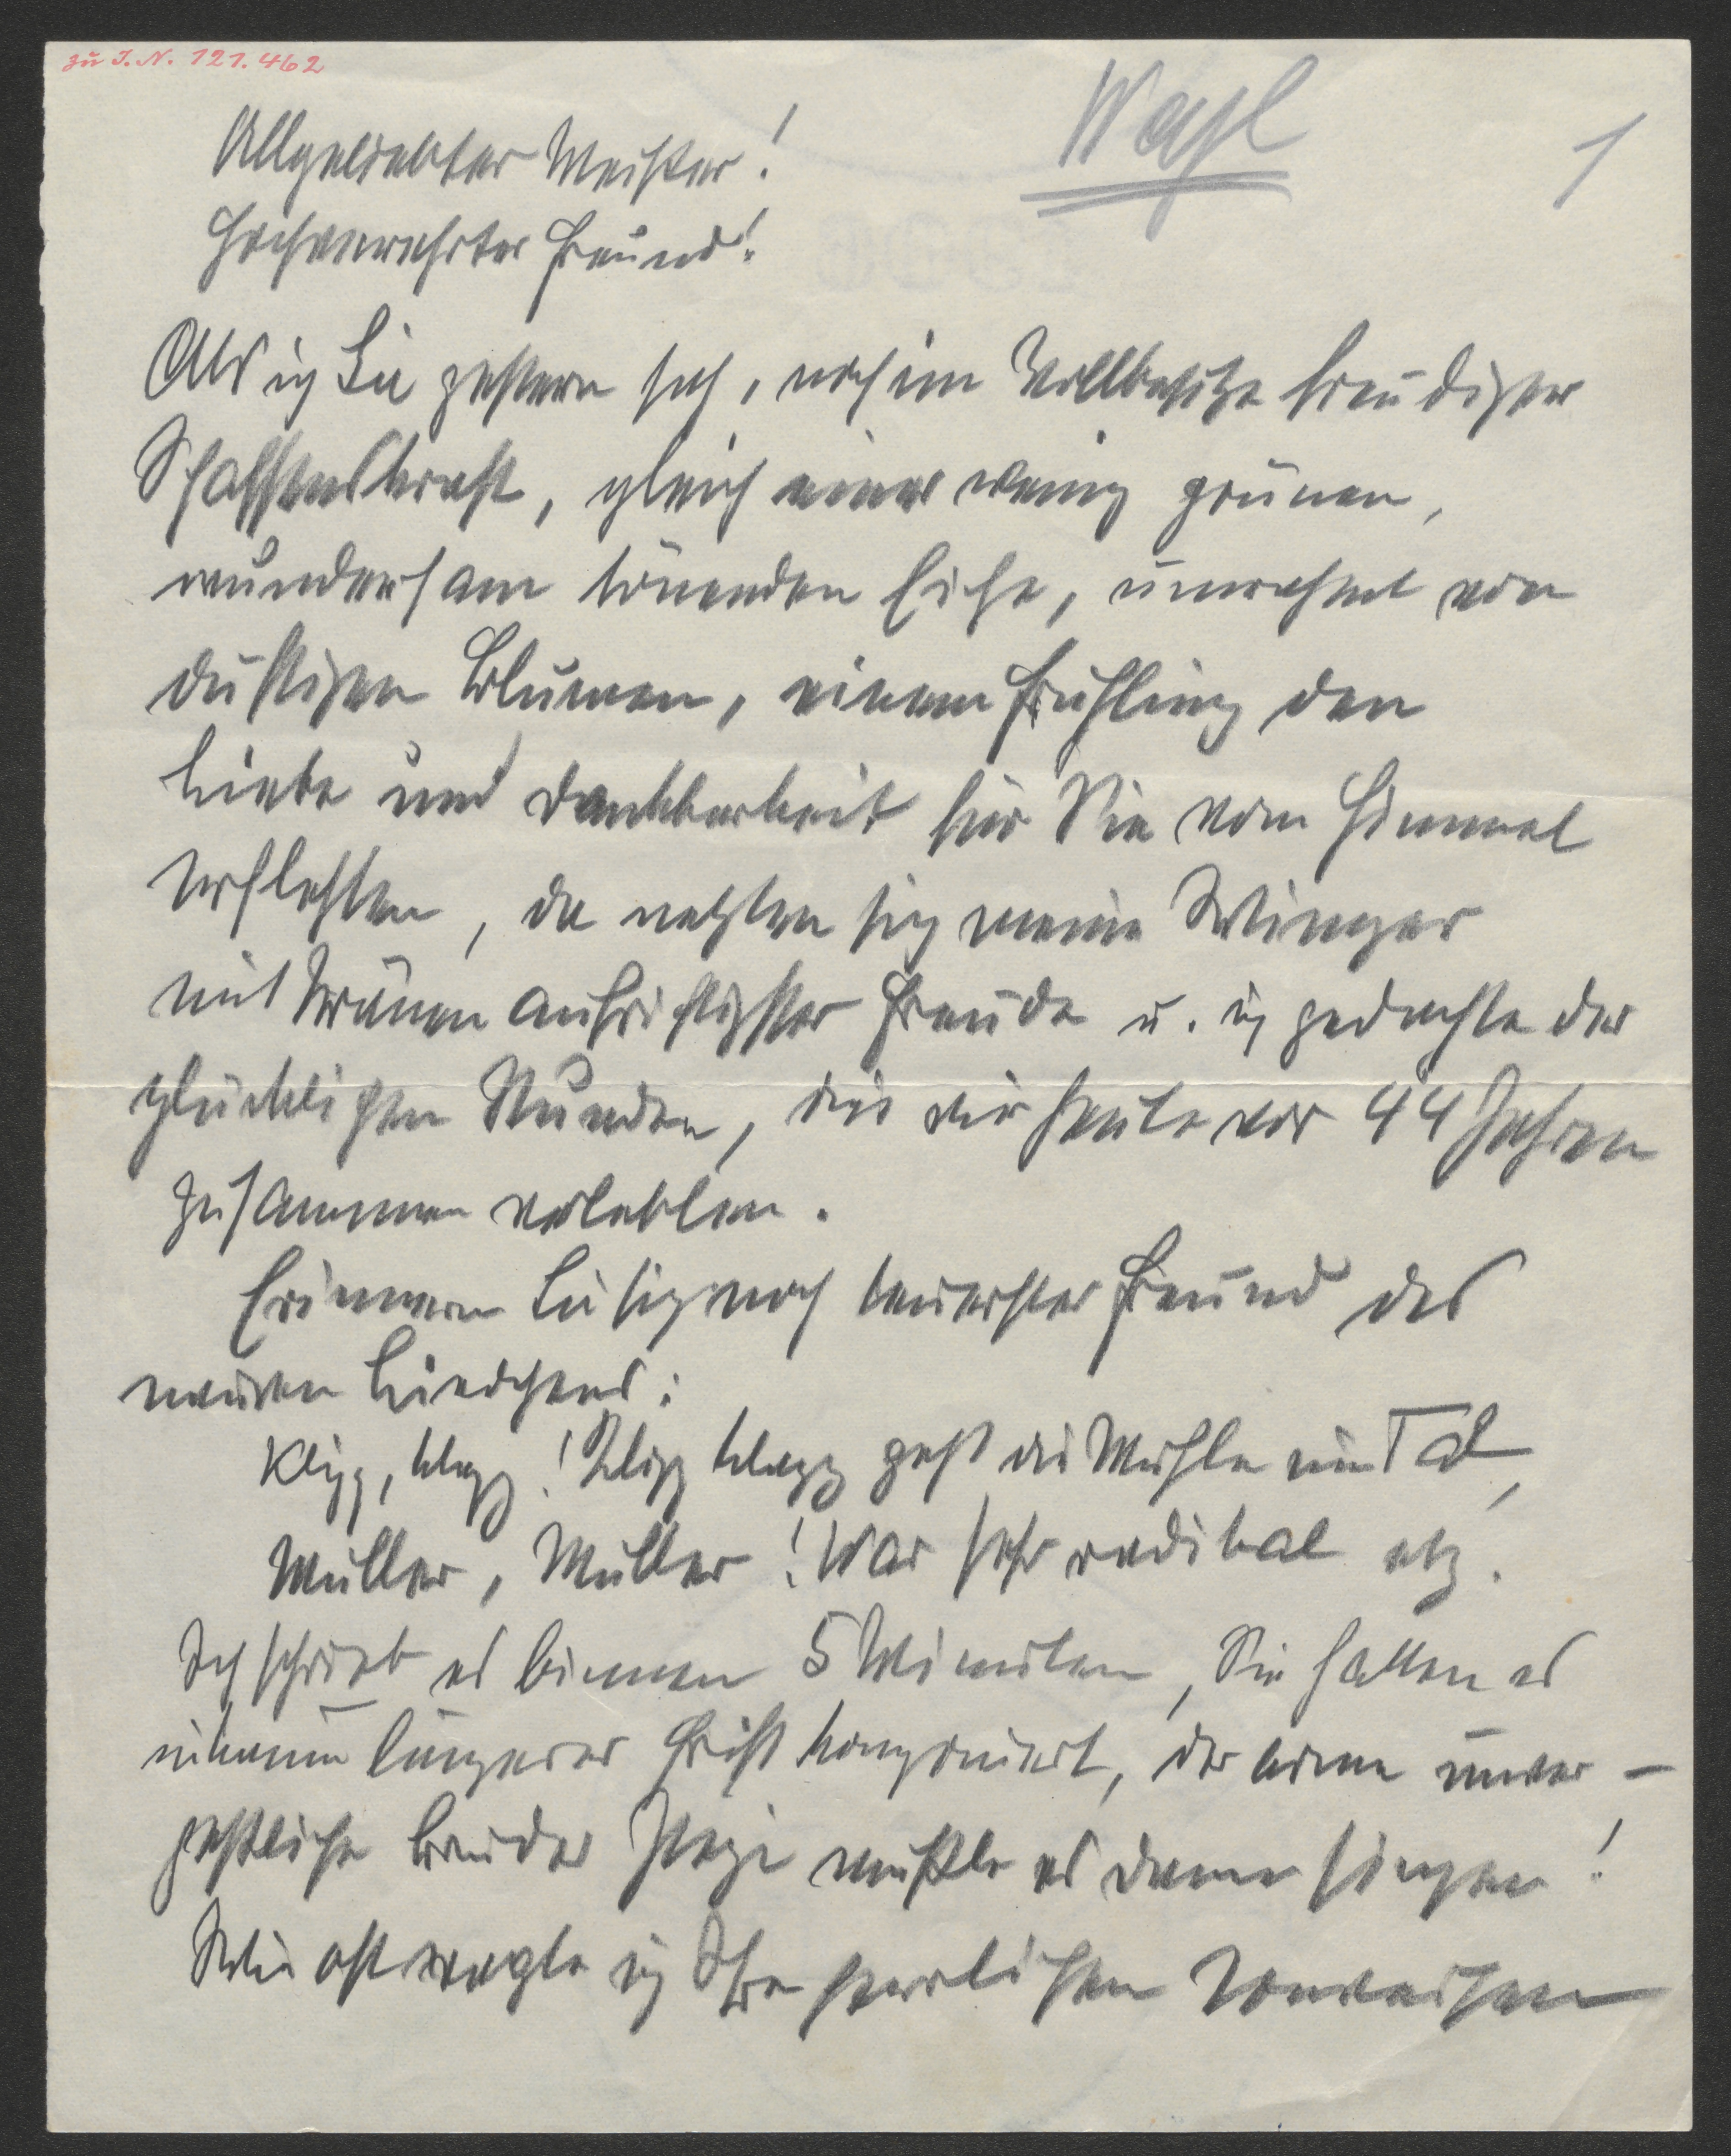 zu I. N. 121.462
Weyl
1
Allgeliebter Meister!
Hochverehrter Freund!
Als ich Sie gestern sah, noch im Vollbesitze freudiger
Schaffenskraft, gleich einer ewig grünen,
wundersam tönenden Eiche, umrahmt von
duftigen Blumen, einem Frühling den
Liebe und Dankbarkeit für Sie vom Himmel
erflehten, da netzten sich meine Wimper
mit Tränen aufrichtigster Freude u. ich gedachte der
glücklichen Stunden, die wir heute vor 44 Jahren
zusammen verlebten.
Erinnern Sie sich noch teuerster Freund des
neuen Liedchens:
Klipp, klapp! Klipp klapp geht die Mühle im Tal,
Müller, Müller! War sehr radikal etz.
Ich schrieb es binnen 5 Minuten, Sie hatten es
in kaum längerer Frist komponiert, der arme unver-
geßliche Bruder mußte es dann singen!
Wie oft wagte ich Ihre herrlichen Tonweisen